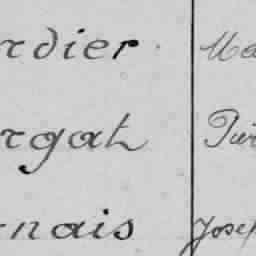 rdier Ma
rgat Pier
nais Josep